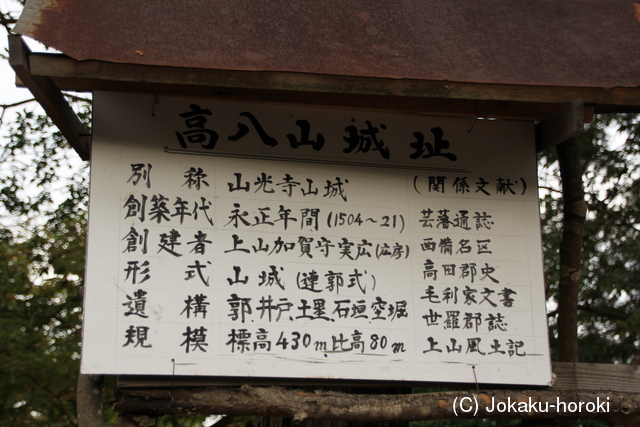 高八山城址
別称 山光寺山城
創築年代 永正年間(1504〜21)
創建者 上山加賀守実広(広房)
形式 山城(連郭式)
遺構 郭、井戸、土塁、石垣、空堀
規模 標高430m比高80m
(関係文献)
芸藩通誌
西備名区
高田郡史
毛利家文書
世羅郡誌
上山風土記
(C) Jokaku-horoki